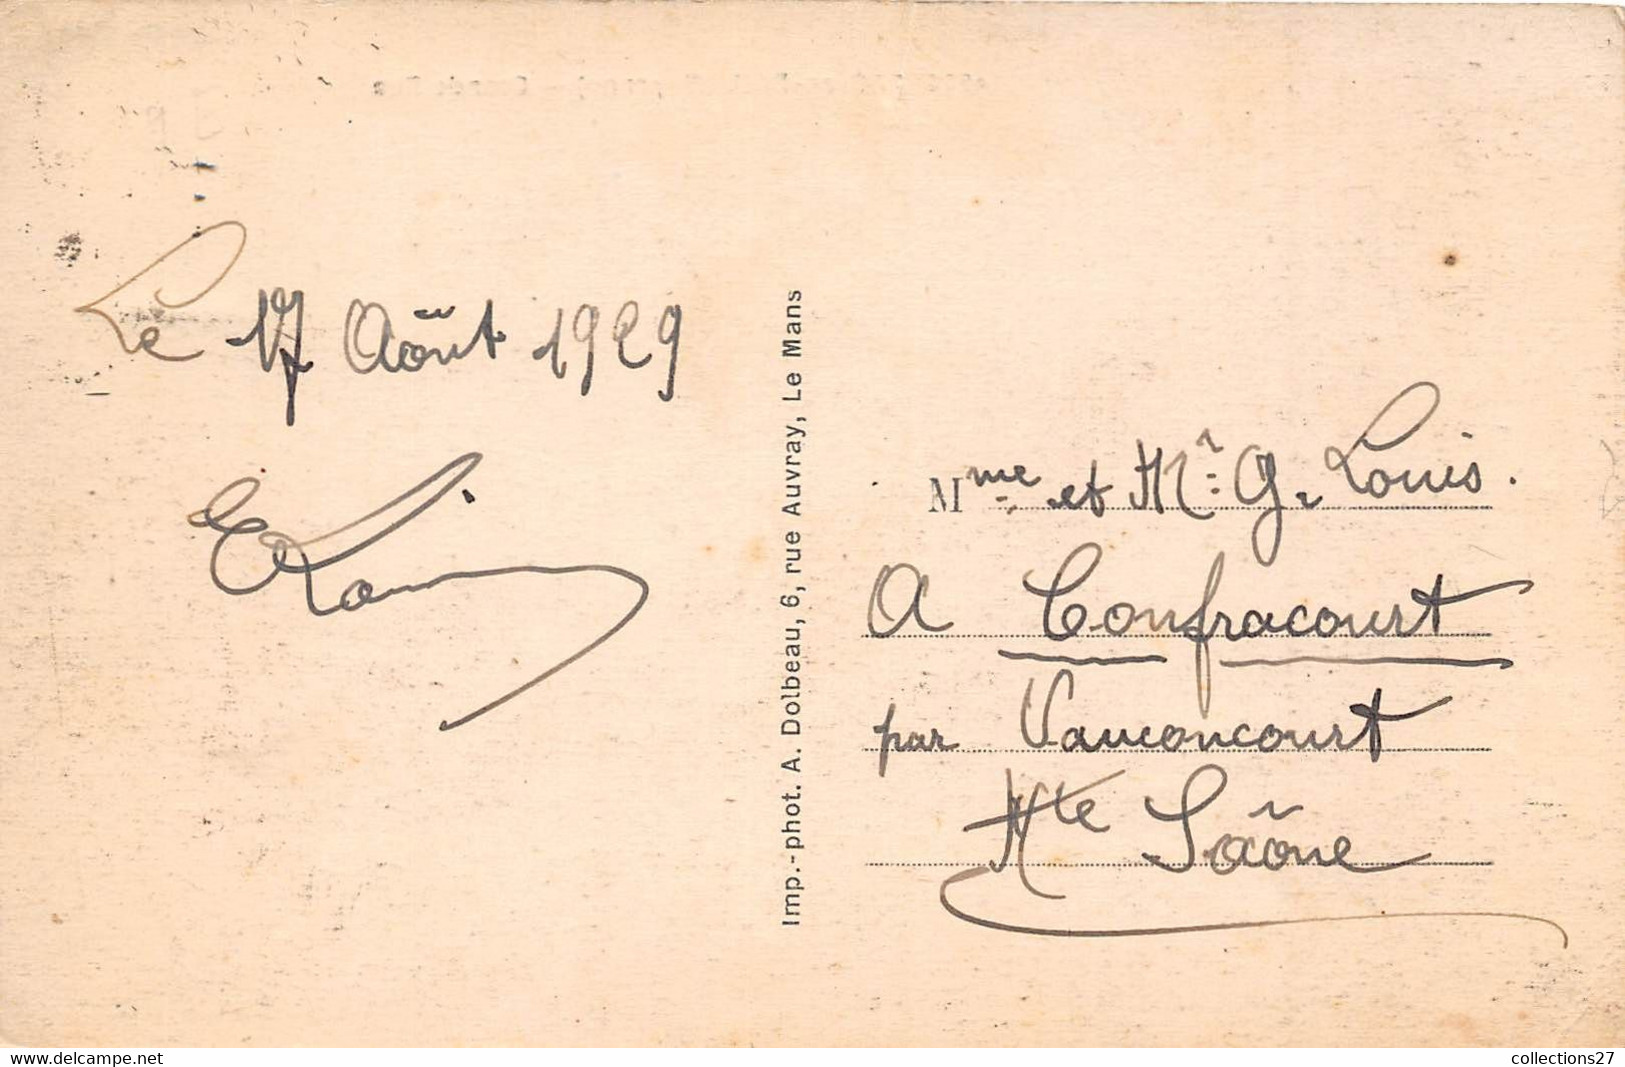 Le 17 Août 1929
Imp.-phot. A. Dolbeau, 6, rue Auvray, Le Mans
Mme et Mr G. Louis.
A Confracourt
par Vauconcourt
Hte Saône
https://www.delcampe.net
collections27